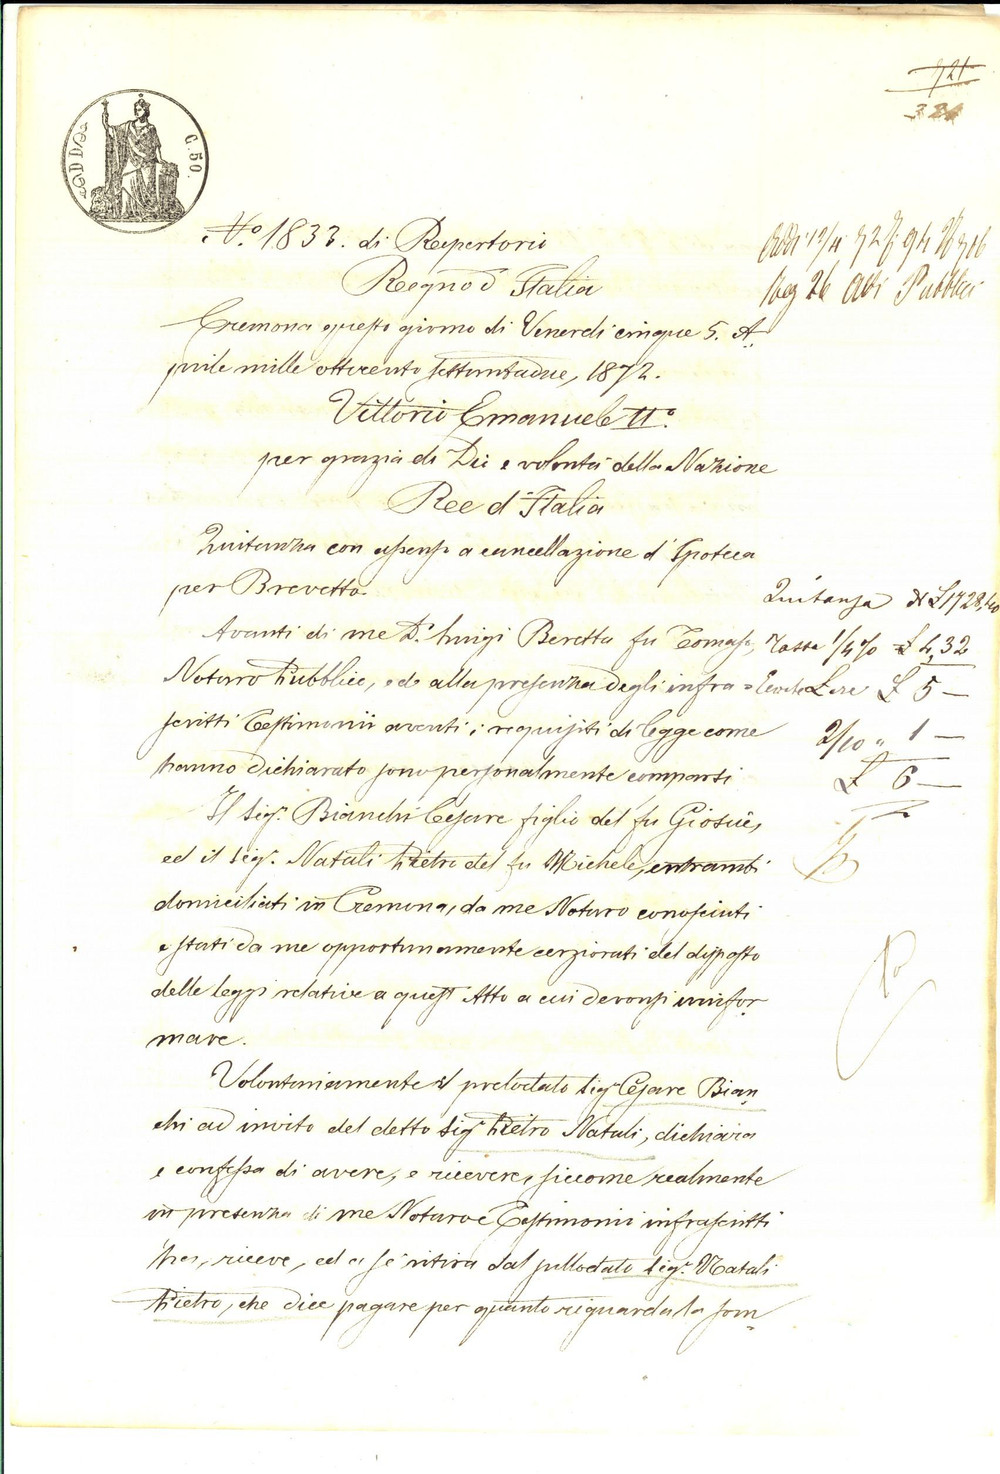 C. 50.
721
N.º 1833. di Repertorio
Regno d'Italia
Cremona questo giorno di Venerdi cinque 5. A=
prile mille ottocento settantadue, 1872.
Vittorio Emanuele IIº
per grazia di Dio e volontà della Nazione
Ree d'Italia
Quitanza con assenso a cancellazione d'Ipoteca
per Brevetto.
Avanti di me D.r Luigi Beretta fu Tomaso,
Notaro Pubblico, ed alla presenza degli infra=
scritti Testimonii aventi i requisiti di legge come
hanno dichiarato sono personalmente comparsi
Il Sig.r Bianchi Cesare figlio del fu Giosuè,
ed il Sig.r Natali Pietro del fu Michele, entrambi
domiciliati in Cremona, da me Notaro conosciuti
e stati da me opportunamente cerziorati del disposto
delle leggi relative a quest'Atto a cui devonsi unifor=
mare.
Volontariamente il prelodato Sig.r Cesare Bian=
chi ad invito del detto Sig.r Pietro Natali, dichiara
e confessa di avere, e ricevere, siccome realmente
in presenza di me Notaro e Testimonii infrascritti
ha, riceve, ed a sè ritira dal sullodato Sig.r Natali
Pietro, che dice pagare per quanto riguarda la som=
Reg 26 Atti Pubblici
Quitanza di £ 1728,40
Tassa 1/4 % £ 4,32
£ 5 —
2/10 " 1 —
£ 6 —